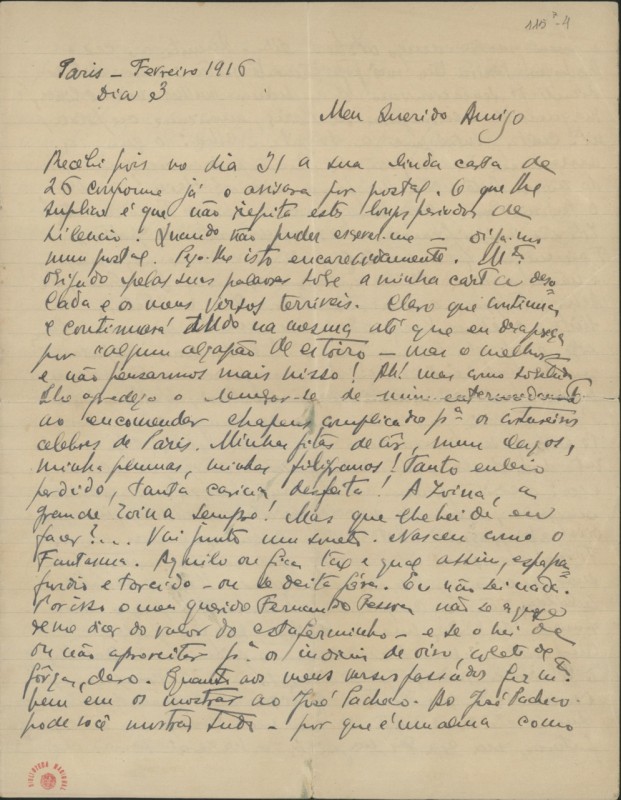 115⁷-4
Paris – Fevereiro 1916
Dia 3
Meu Querido Amigo
Recebi pois no dia 31 a sua linda carta de
26 conforme já o avisara por postal. O que lhe
suplico é que não repita estes longos periodos de
silencio. Quando não puder escrever-me – diga-mo
num postal. Peço-lhe isto encarecidamente. M.to
obrigado pelas suas palavras sobre a minha carta deso-
lada e os meus versos terriveis. Claro que continua
e continuará tudo na mesma até que eu desapareça
por algum alçapão de estoiro – mas o melhor
é não pensarmos mais nisso! Ah! mas como
lho agradeço o lembrar-se de mim
ao encomendar chapeus complicados p.a os costureiros
celebres de Paris. Minhas fitas de côr, meus laços,
minhas plumas, minhas filigranas! Tanto enleio
perdido, tanta caricia desfeita! A Zoina, a
grande Zoina sempre! Mas que lhe hei de eu
fazer?... Vai junto um soneto. Nasceu como o
Fantasma. Aquilo ou fica tal e qual assim, espará-
furdio e torcido – ou se deita fóra. Eu não sei nada.
Por isso o meu querido Fernando Pessoa não se
de me dizer do valor do estaferminho – e se o hei de
ou não aproveitar p.a os indicios de oiro, colete de
fôrças, claro. Quanto aos meus versos passados fez m.to
bem em os mostrar ao José Pacheco. Ao José Pacheco
pode você mostrar tudo – por que é uma alma como
BIBLIOTECA NACIONAL